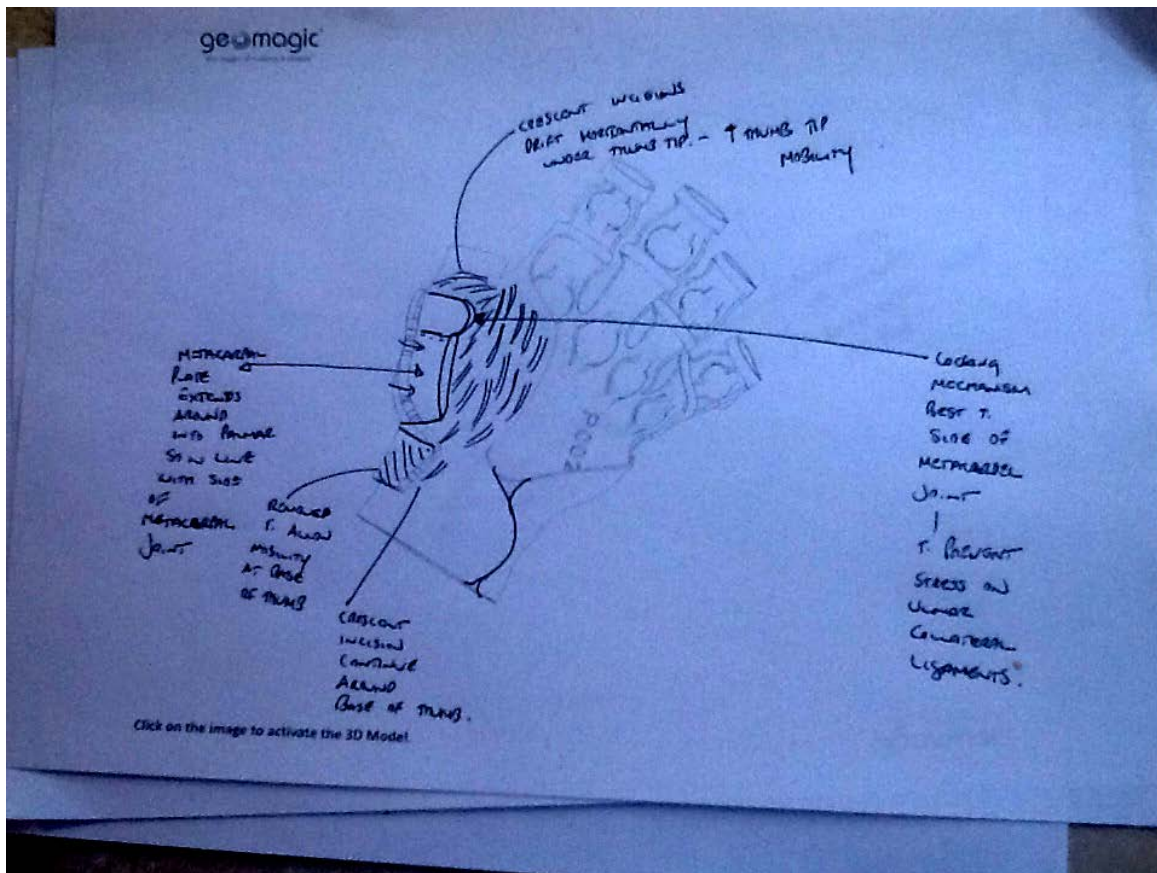 geomagic
CRESCENT INCISIONS
DRIFT HORIZONTALLY
UNDER THUMB TIP. - ↑ THUMB TIP
MOBILITY
METACARPAL
PLATE
EXTENDS
AROUND
INTO PALMAR
SO IN LINE
WITH SIDE
OF
METACARPAL
JOINT
REDUCED
T. ALLOW
MOBILITY
AT BASE
OF THUMB
CRESCENT
INCISION
CONTINUE
AROUND
BASE OF THUMB.
LOCKING
MECHANISM
REST T.
SIDE OF
METACARPEL
JOINT
T. PREVENT
STRESS ON
ULNAR
COLLATERAL
LIGAMENTS.
POD2
Click on the image to activate the 3D Model